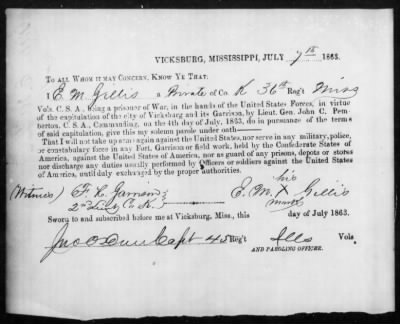 VICKSBURG, MISSISSIPPI, JULY 7th 1863.
TO ALL WHOM IT MAY CONCERN, KNOW YE THAT:
I E. M. Gillis a Private of Co. K 36th Reg't Miss
Vols. C. S. A., being a prisoner of War, in the hands of the United States Forces, in virtue
of the capitulation of the city of Vicksburg and its Garrison, by Lieut. Gen. John C. Pem-
berton, C. S. A., Commanding, on the 4th day of July, 1863, do in pursuance of the terms
of said capitulation, give this my solemn parole under oath——
That I will not take up arms again against the United States, nor serve in any military, police,
or constabulary force in any Fort, Garrison or field work, held by the Confederate States of
America, against the United States of America, nor as guard of any prisons, depots or stores
nor discharge any duties usually performed by Officers or soldiers against the United States
of America, until duly exchanged by the proper authorities.
his
(Witness) F. L. E. M. X Gillis
2nd Lieut Co K. mark
Sworn to and subscribed before me at Vicksburg, Miss., this day of July 1863.
Jno Capt 45 Reg't Ills Vols.
AND PAROLING OFFICER.